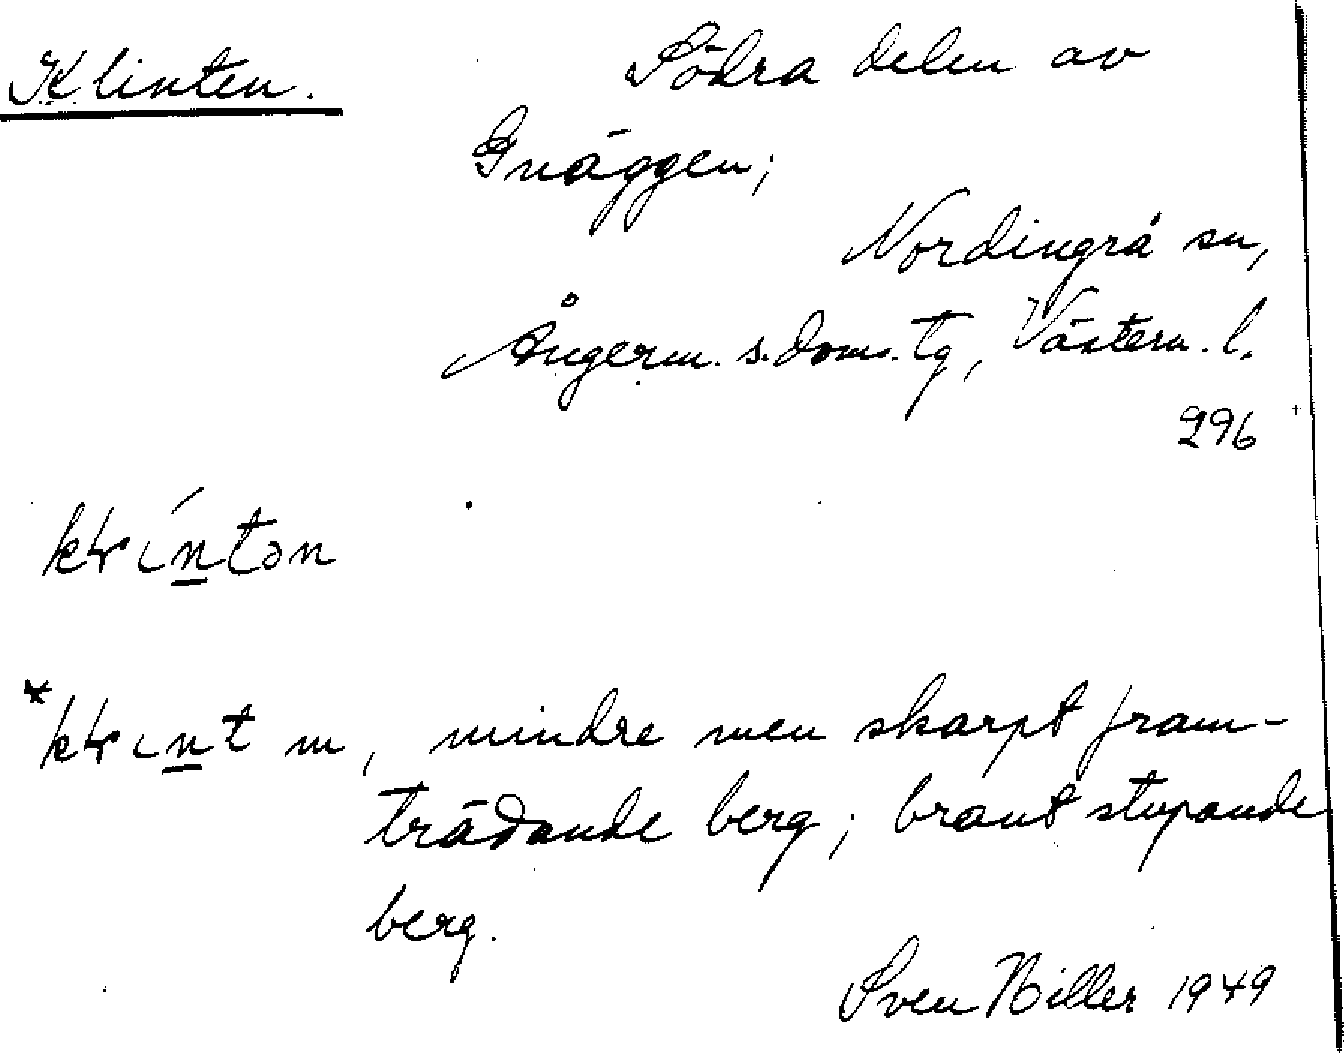 Klinten.
Södra delen av
Gnäggen;
Nordingrå sn,
Ångerm. s. doms. tg, Västern. l.
296
kɬíntən
*kɬınt m, mindre men skarpt fram-
trädande berg; brant stupande
berg.
Sven Hiller 1949